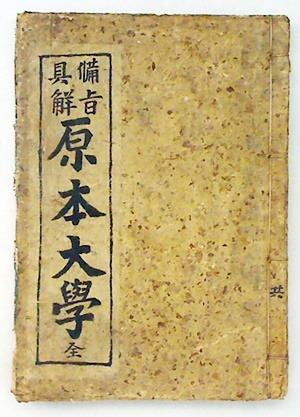 備旨
具解
原本大學
全
共